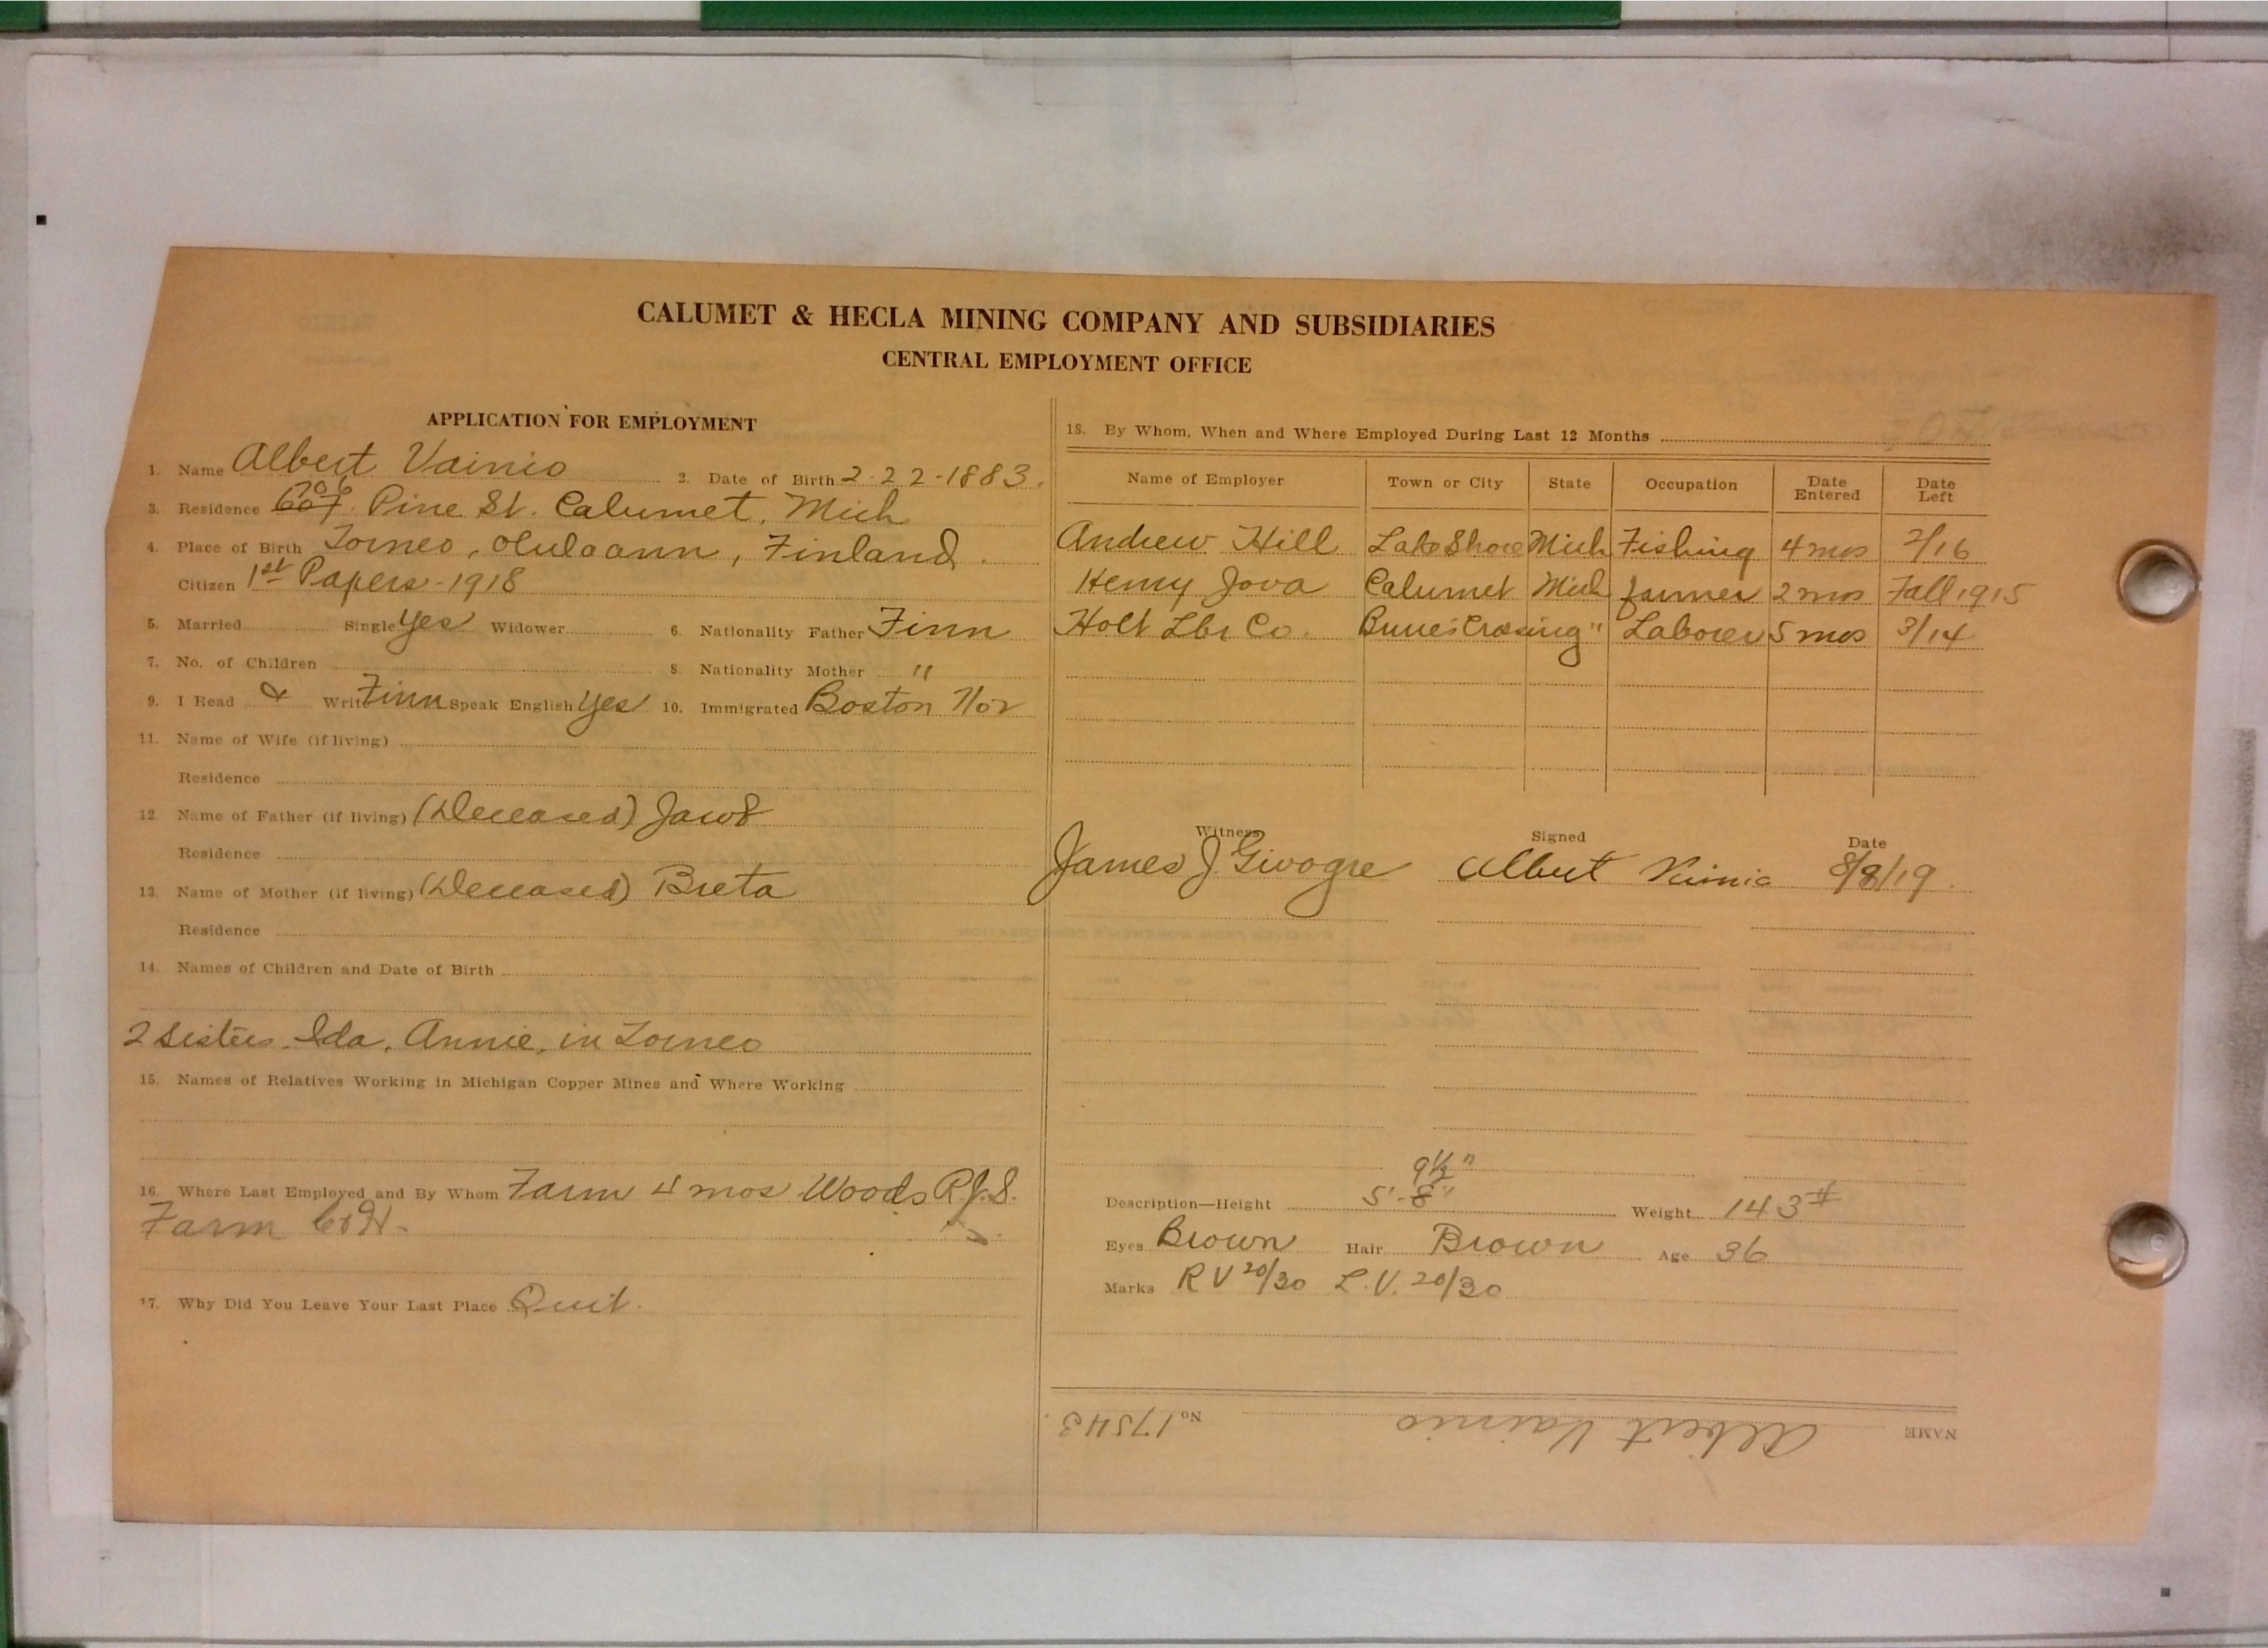 CALUMET & HECLA MINING COMPANY AND SUBSIDIARIES
CENTRAL EMPLOYMENT OFFICE
APPLICATION FOR EMPLOYMENT
1. Name Albert Vainio 2. Date of Birth 2-22-1883.
706
3. Residence 607 Pine St. Calumet, Mich
4. Place of Birth Torneo, Olulaann, Finland.
Citizen 1st Papers - 1918
5. Married Single Yes Widower 6. Nationality Father Finn
7. No. of Children 8. Nationality Mother "
9. I Read & Write Finn Speak English Yes 10. Immigrated Boston
11. Name of Wife (if living)
Residence
12. Name of Father (if living) (Deceased) Jacob
Residence
13. Name of Mother (if living) (Deceased) Breta
Residence
14. Names of Children and Date of Birth
2 sisters. Ida, Annie, in Torneo
15. Names of Relatives Working in Michigan Copper Mines and Where Working
16. Where Last Employed and By Whom Farm 4 mos Woods R.J.S.
Farm
17. Why Did You Leave Your Last Place Quit.
18. By Whom, When and Where Employed During Last 12 Months
Name of Employer Town or City State Occupation Date Entered Date Left
Andrew Hill Lake Shore Mich Fishing 4 mos 2/16
Henry Jova Calumet Mich farmer 2 mos Fall 1915
Holt Lbr Co. Crossing " Laborer 5 mos 3/14
Witness Signed Date
James J Givogre Albert Vainio 8/8/19.
9½"
Description—Height 5'-8" Weight 143#
Eyes Brown Hair Brown Age 36
Marks R V 20/30 L.V. 20/30
NAME Albert Vainio No 17543.